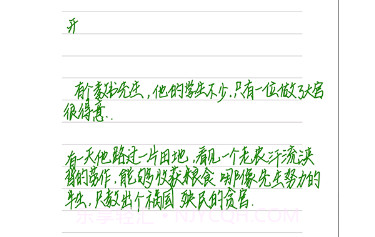 开
有个教书先生，他的学生不少，只有一位做了大官
很得意..
有一天他路过一片田地，看见一个老农汗流浃
背的劳作，能够收获粮食 哪像先生努力的
半生，只教出个祸国殃民的贪官.